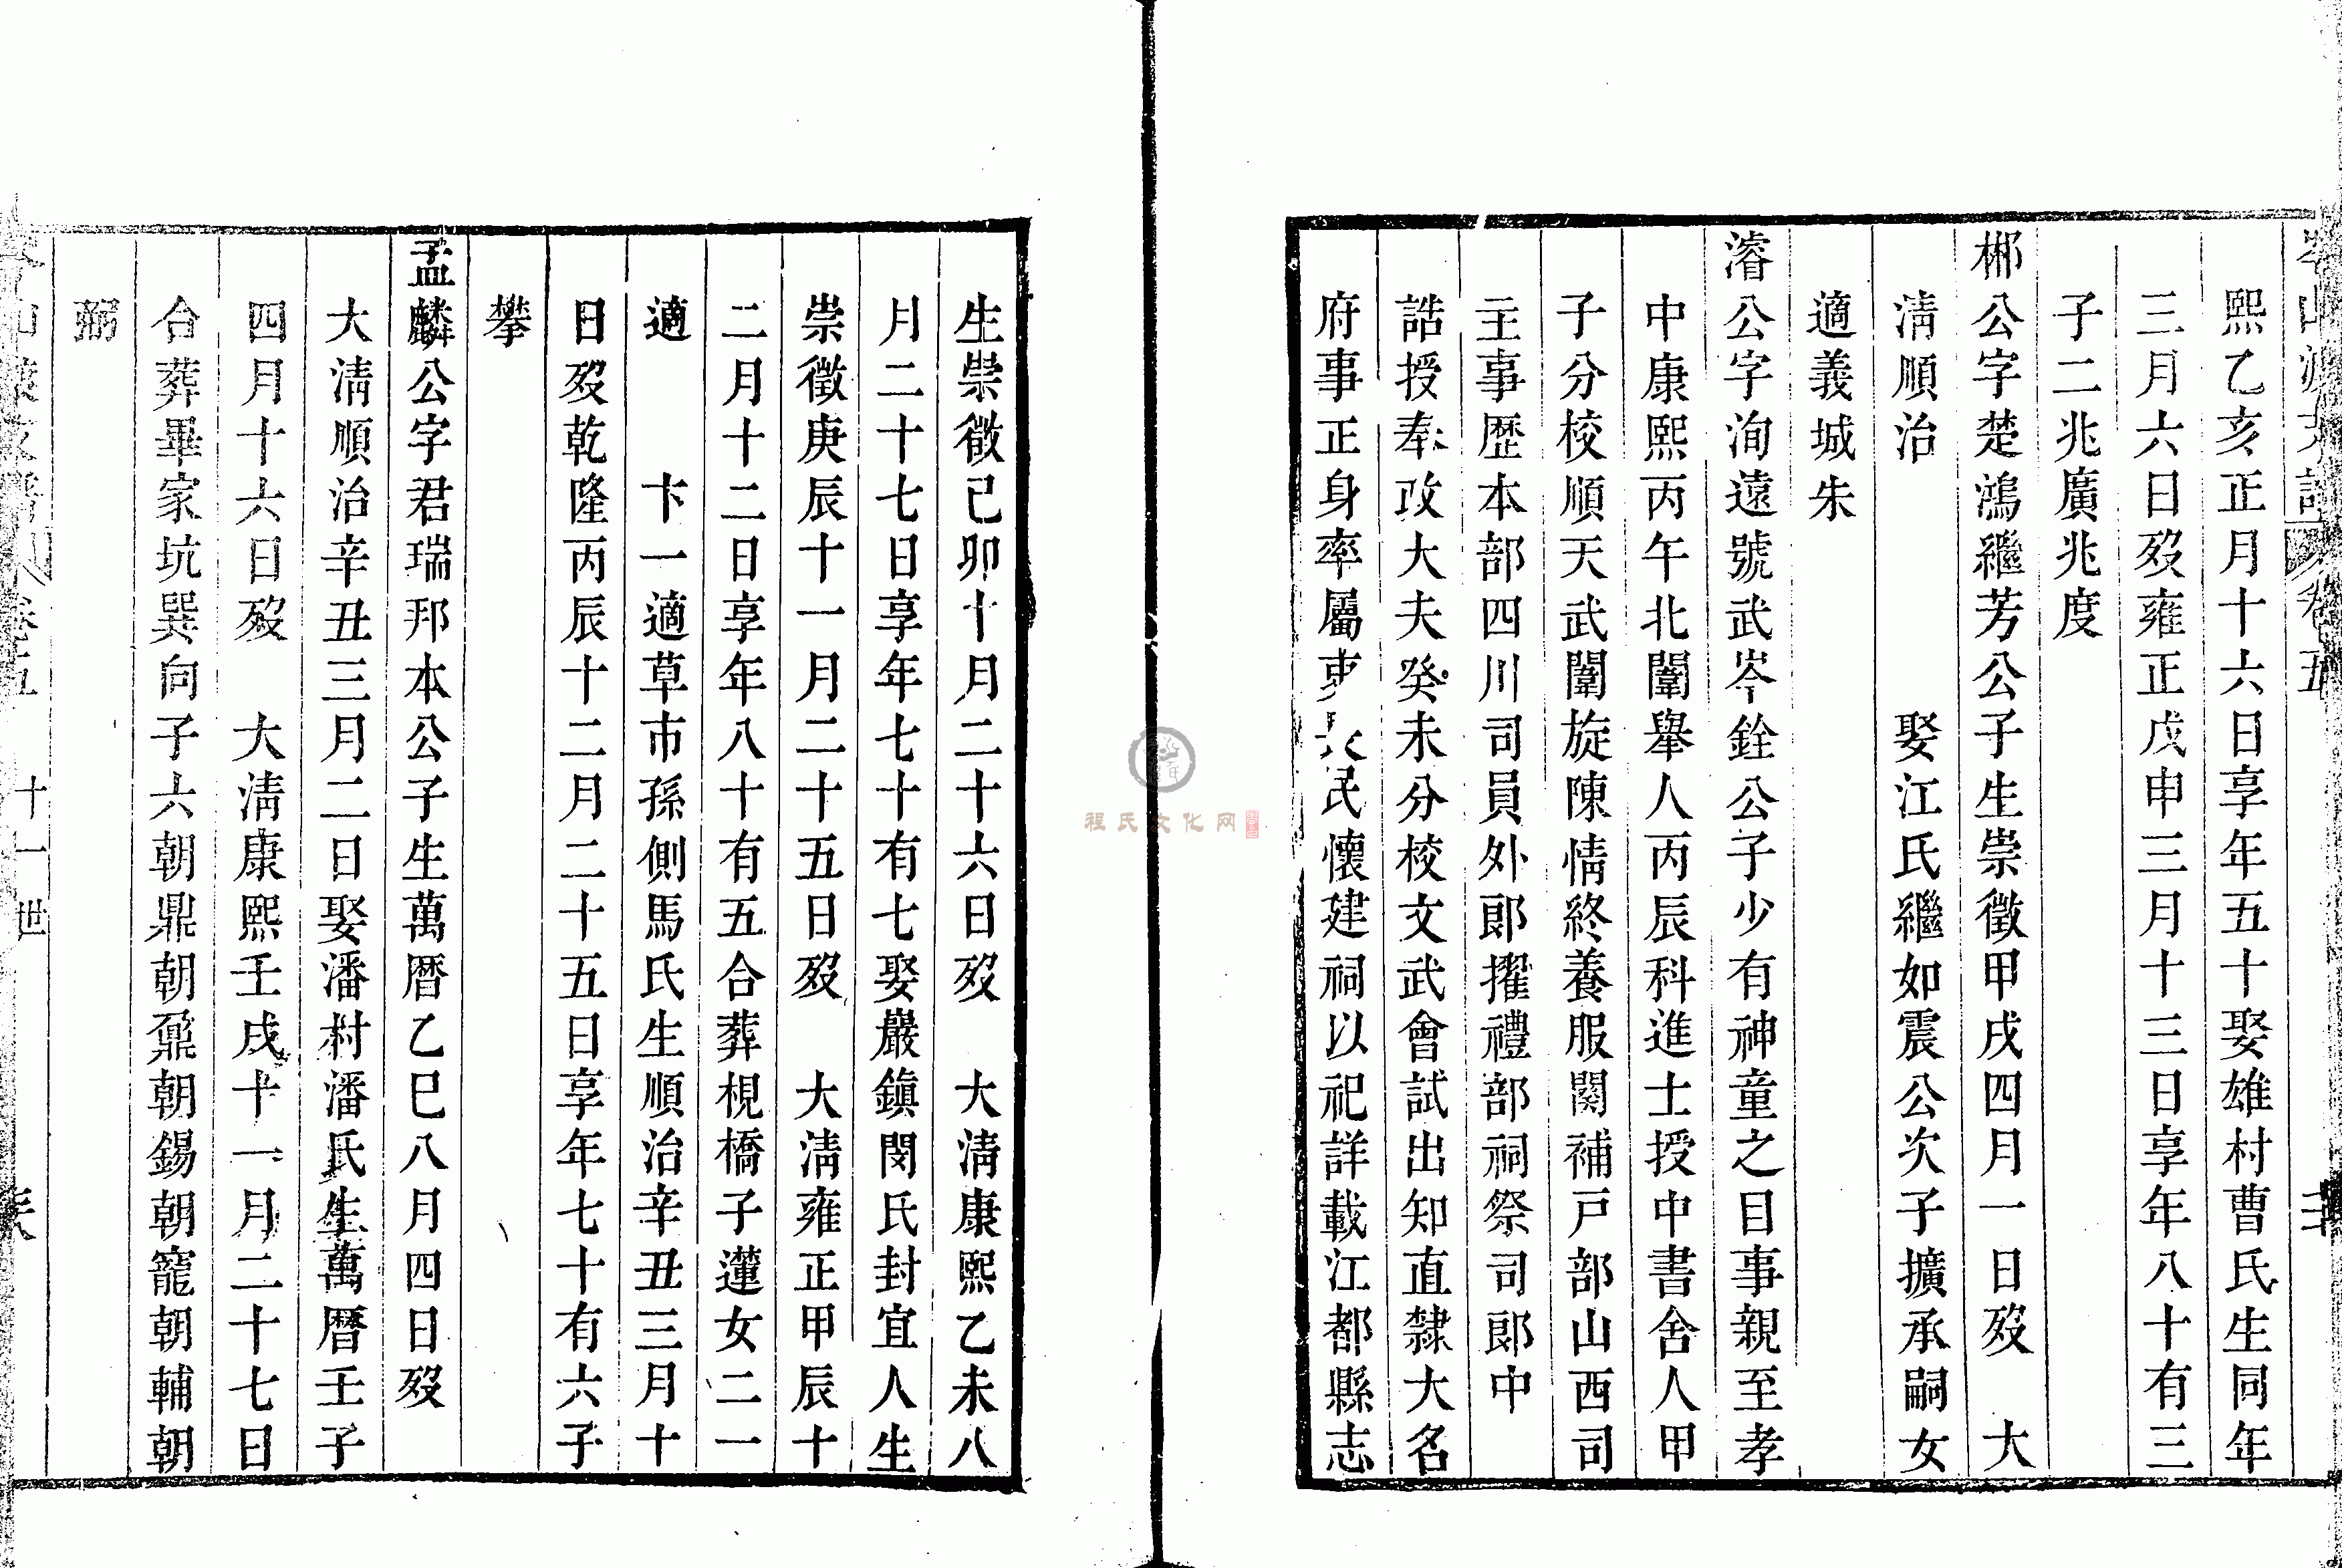 熙乙亥正月十六日享年五十娶雄村曹氏生同年
三月六日歿雍正戊申三月十三日享年八十有三
子二兆廣兆度
郴公字楚鴻繼芳公子生崇徵甲戌四月一日歿　大
清順治　　　　娶江氏繼如震公次子擴承嗣女
適義城朱
濬公字洵遠號武岑銓公子少有神童之目事親至孝
中康熙丙午北闈舉人丙辰科進士授中書舍人甲
子分校順天武闈旋陳情終養服闋補戸部山西司
主事歷本部四川司員外郎擢禮部祠祭司郎中
誥授奉政大夫癸未分校文武會試出知直隸大名
府事正身率屬民懷建祠以祀詳載江都縣志
生崇徵己卯十月二十六日歿　大清康熙乙未八
月二十七日享年七十有七娶巖鎮閔氏封宜人生
崇徵庚辰十一月二十五日歿　大清雍正甲辰十
二月十二日享年八十有五合葬梘橋子蓮女二一
適　　卞一適草市孫側馬氏生順治辛丑三月十
日歿乾隆丙辰十二月二十五日享年七十有六子
攀
孟麟公字君瑞邦本公子生萬曆乙巳八月四日歿
大清順治辛丑三月二日娶潘村潘氏生萬曆壬子
四月十六日歿　大清康熙壬戌十一月二十七日
合葬畢家坑巽向子六朝鼎朝鼐朝錫朝寵朝輔朝
弼
卷五　十一世
程氏文化网